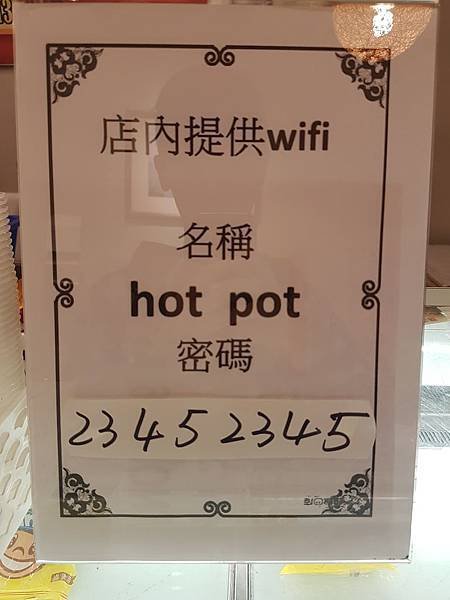 店內提供wifi
名稱
hot pot
密碼
2345 2345